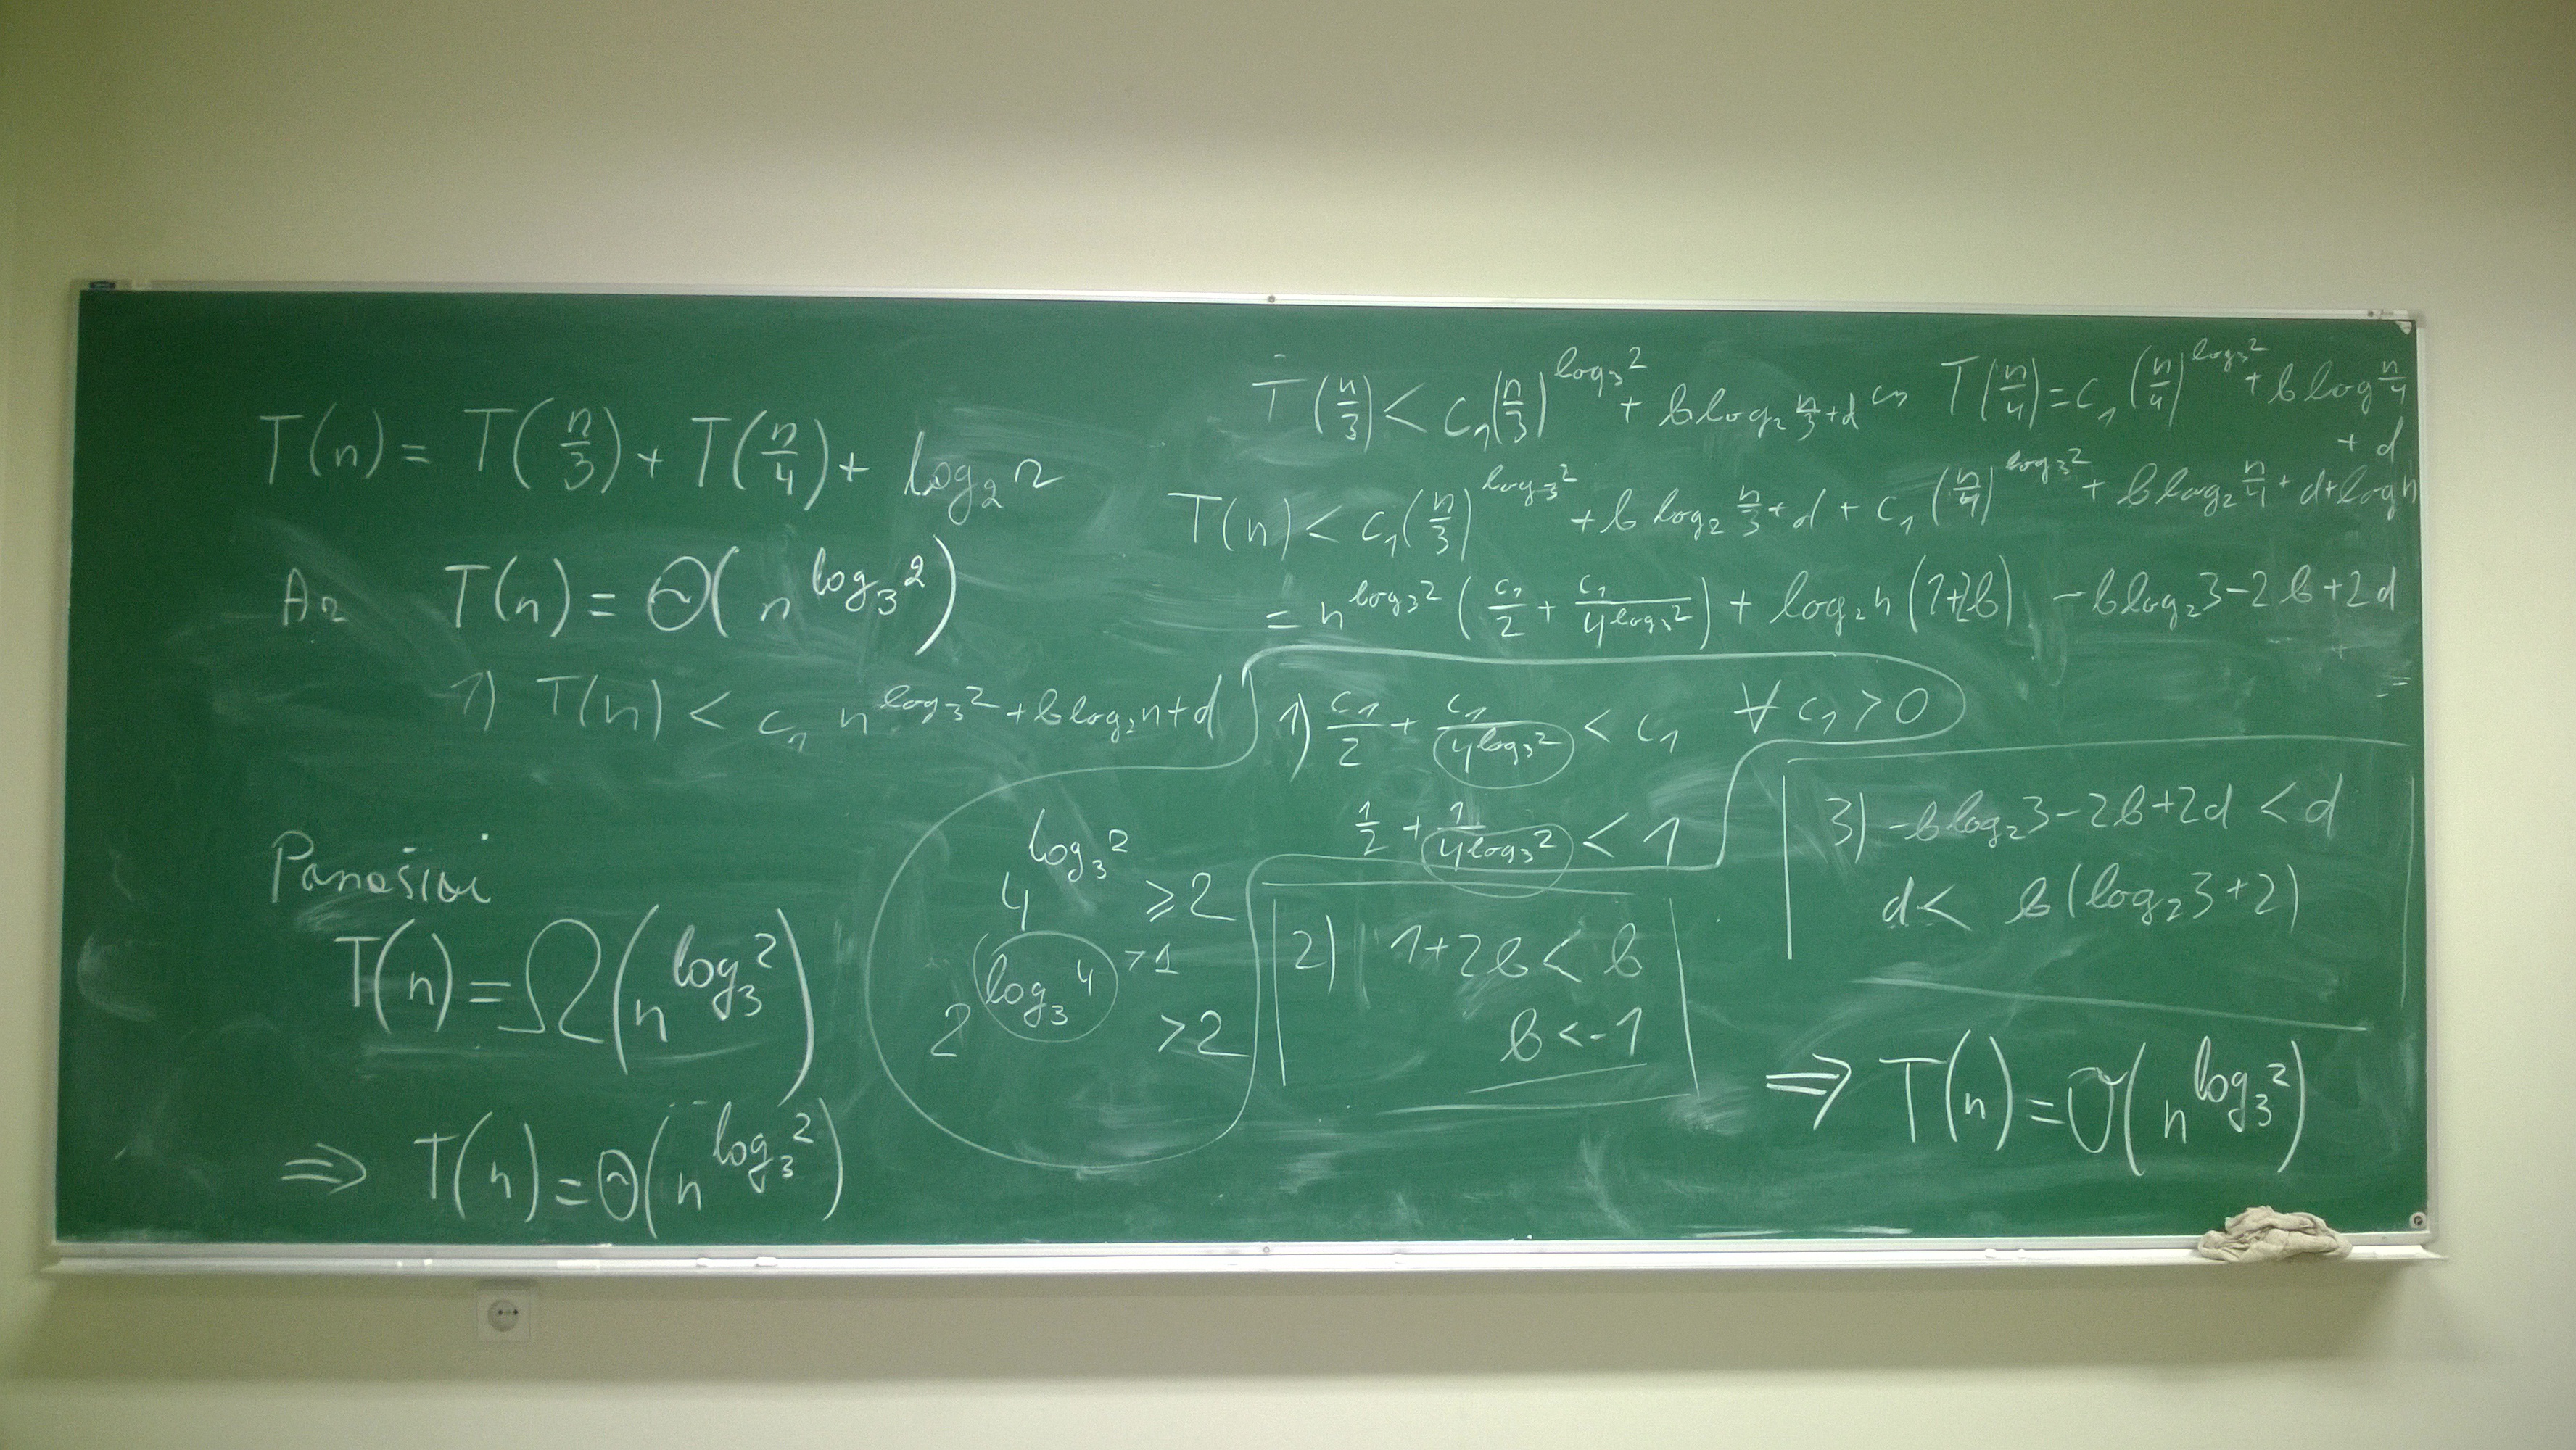 T(n) = T(n/3) + T(n/4) + log₂ n
Ar T(n) = Θ(n^(log₃ 2))
1) T(n) < c₁ n^(log₃ 2) + b log₂ n + d
Panašiai
T(n) = Ω(n^(log₃ 2))
⇒ T(n) = Θ(n^(log₃ 2))
T(n/3) < c₁(n/3)^(log₃ 2) + b log₂ n/3 + d ir T(n/4) = c₁(n/4)^(log₃ 2) + b log n/4 + d
T(n) < c₁(n/3)^(log₃ 2) + b log₂ n/3 + d + c₁(n/4)^(log₃ 2) + b log₂ n/4 + d + log n
= n^(log₃ 2) (c₁/2 + c₁/4^(log₃ 2)) + log₂ n (1+2b) - b log₂ 3 - 2b + 2d
1) c₁/2 + c₁/4^(log₃ 2) < c₁ ∀ c₁ > 0
1/2 + 1/4^(log₃ 2) < 1
4^(log₃ 2) ⩾ 2
2^(log₃ 4) > 2
>1
2) 1+2b < b
b < -1
3) -b log₂ 3 - 2b + 2d < d
d < b(log₂ 3 + 2)
⇒ T(n) = O(n^(log₃ 2))